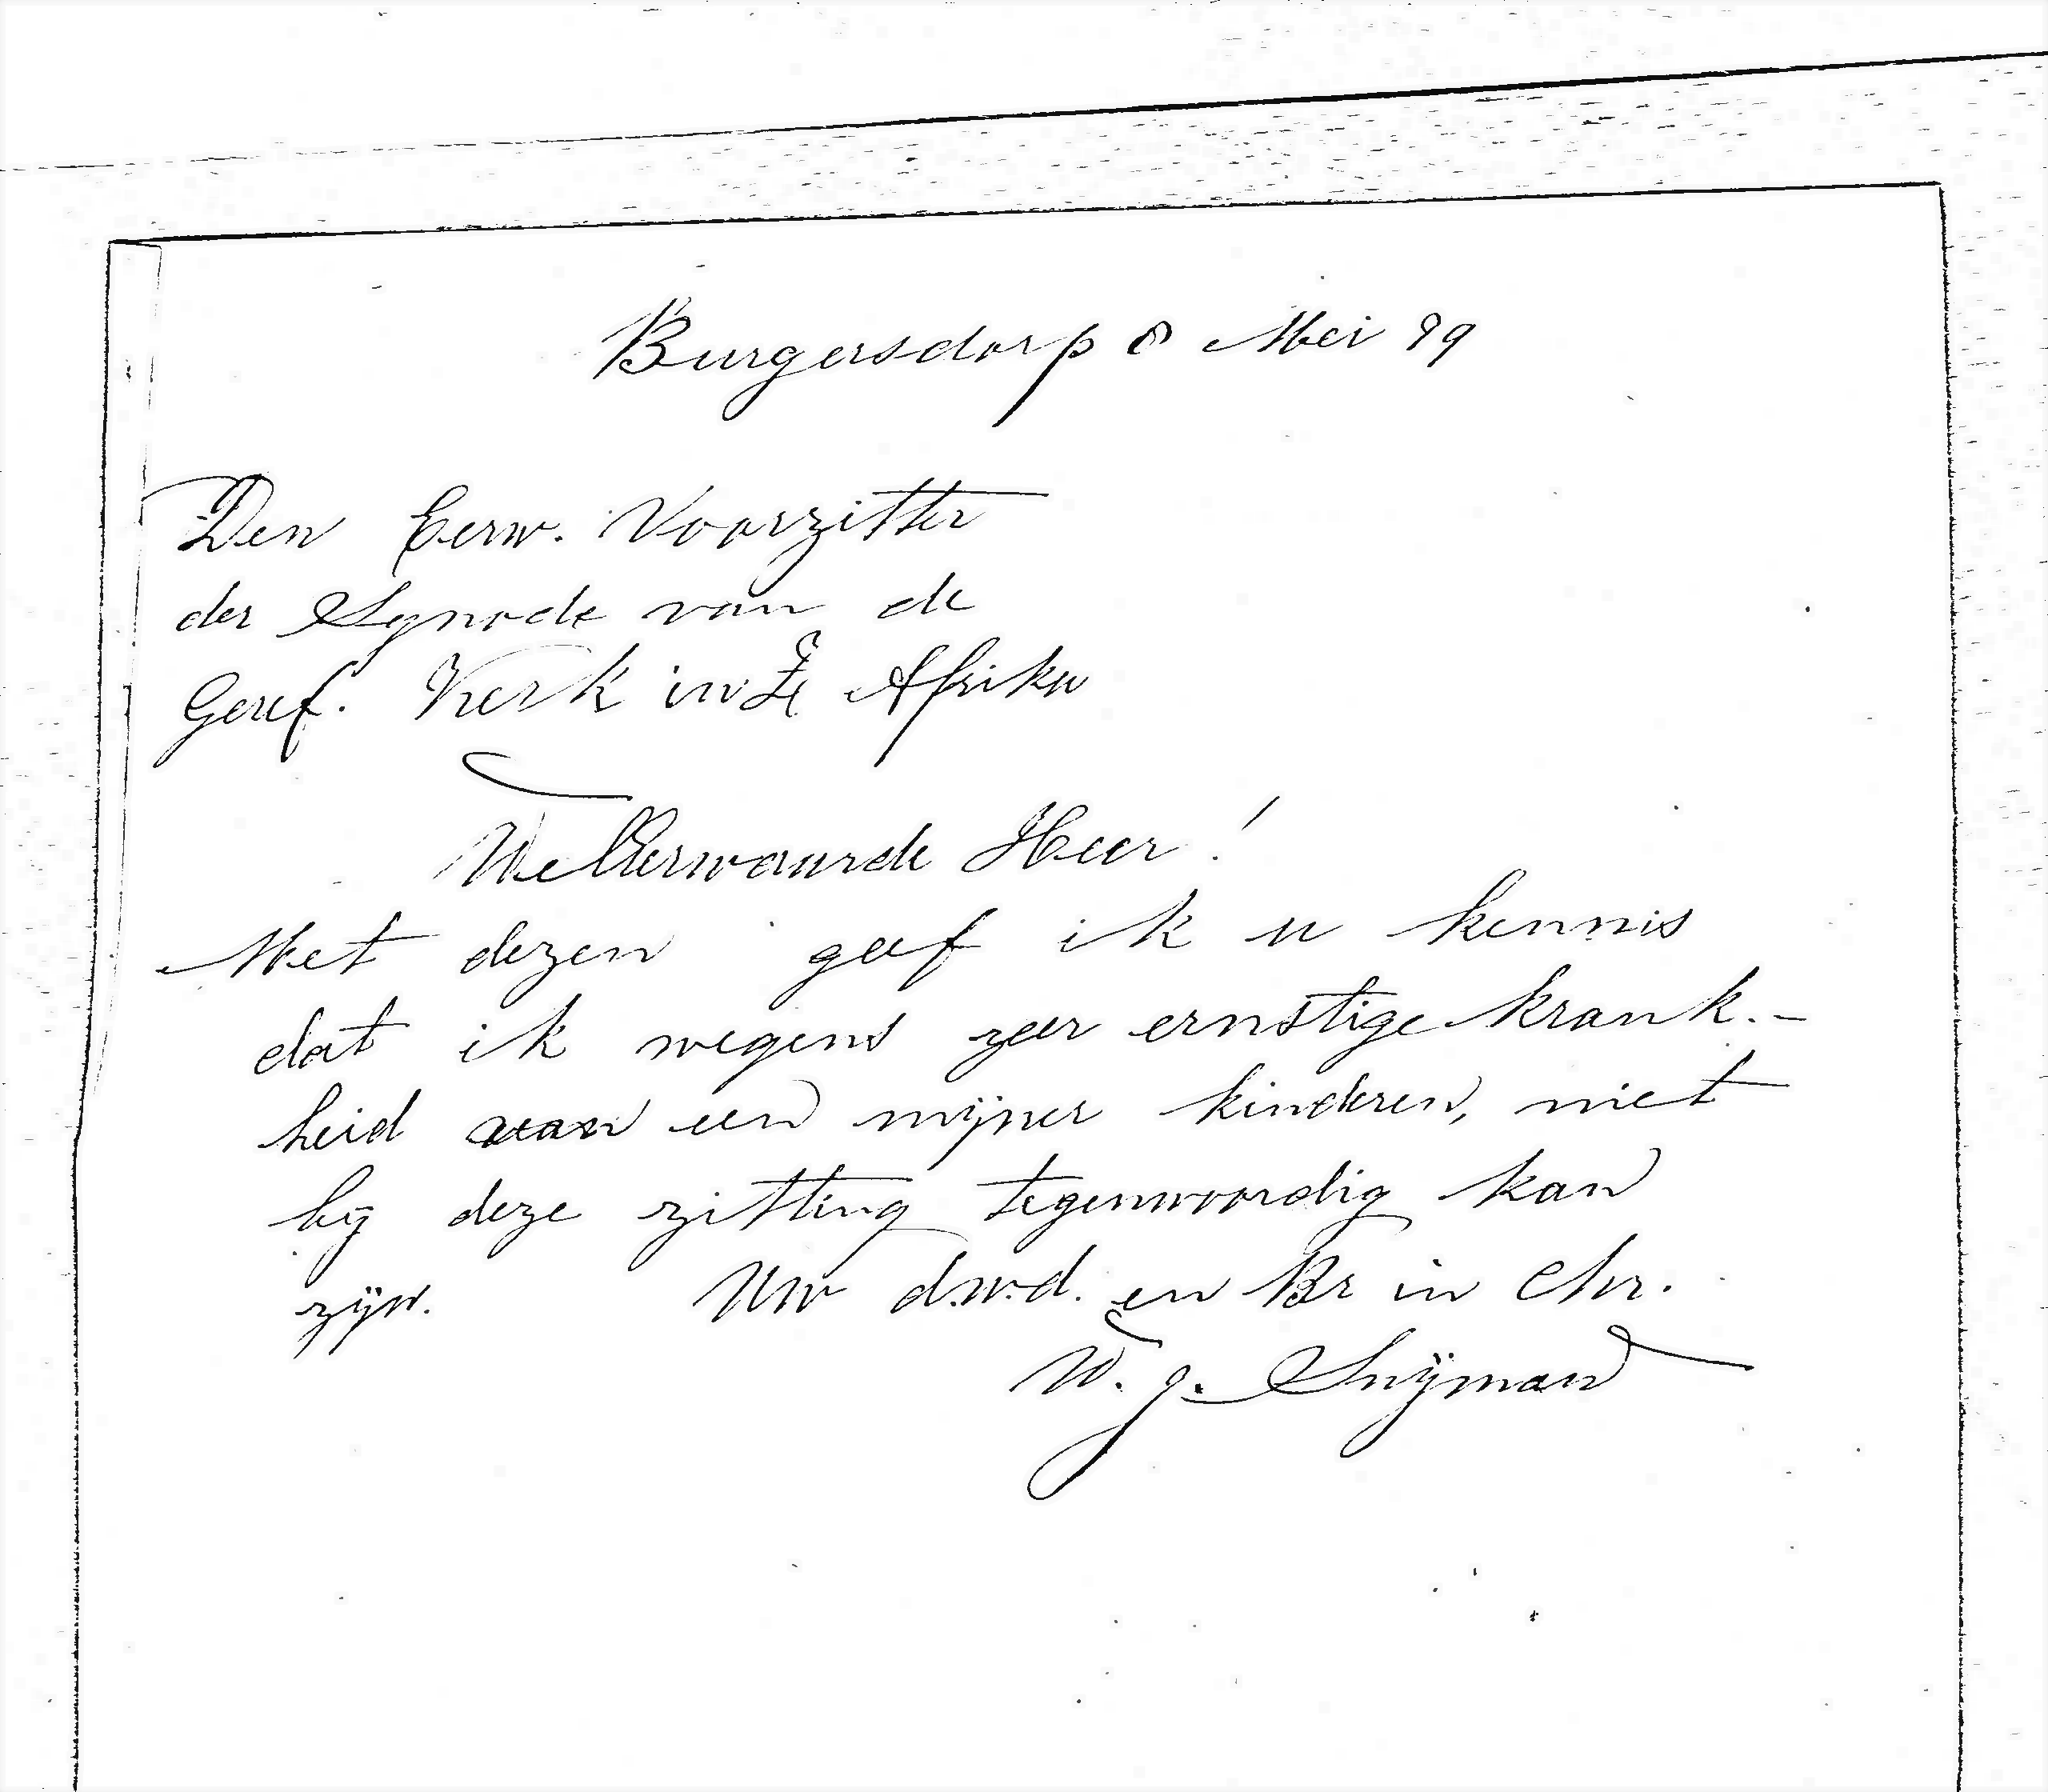 Burgersdorp 8 Mei 99
Den Eerw. Voorzitter
der Synode van de
Geref. Kerk in Z. Afrika
WelEerwaarde Heer!
Met dezen geef ik u kennis
dat ik wegens zeer ernstige krank.-
heid van een mijner kinderen, niet
bij deze zitting tegenwoordig kan
zijn. Uw d.w.d. en Br in Chr.
W. J. Snijman